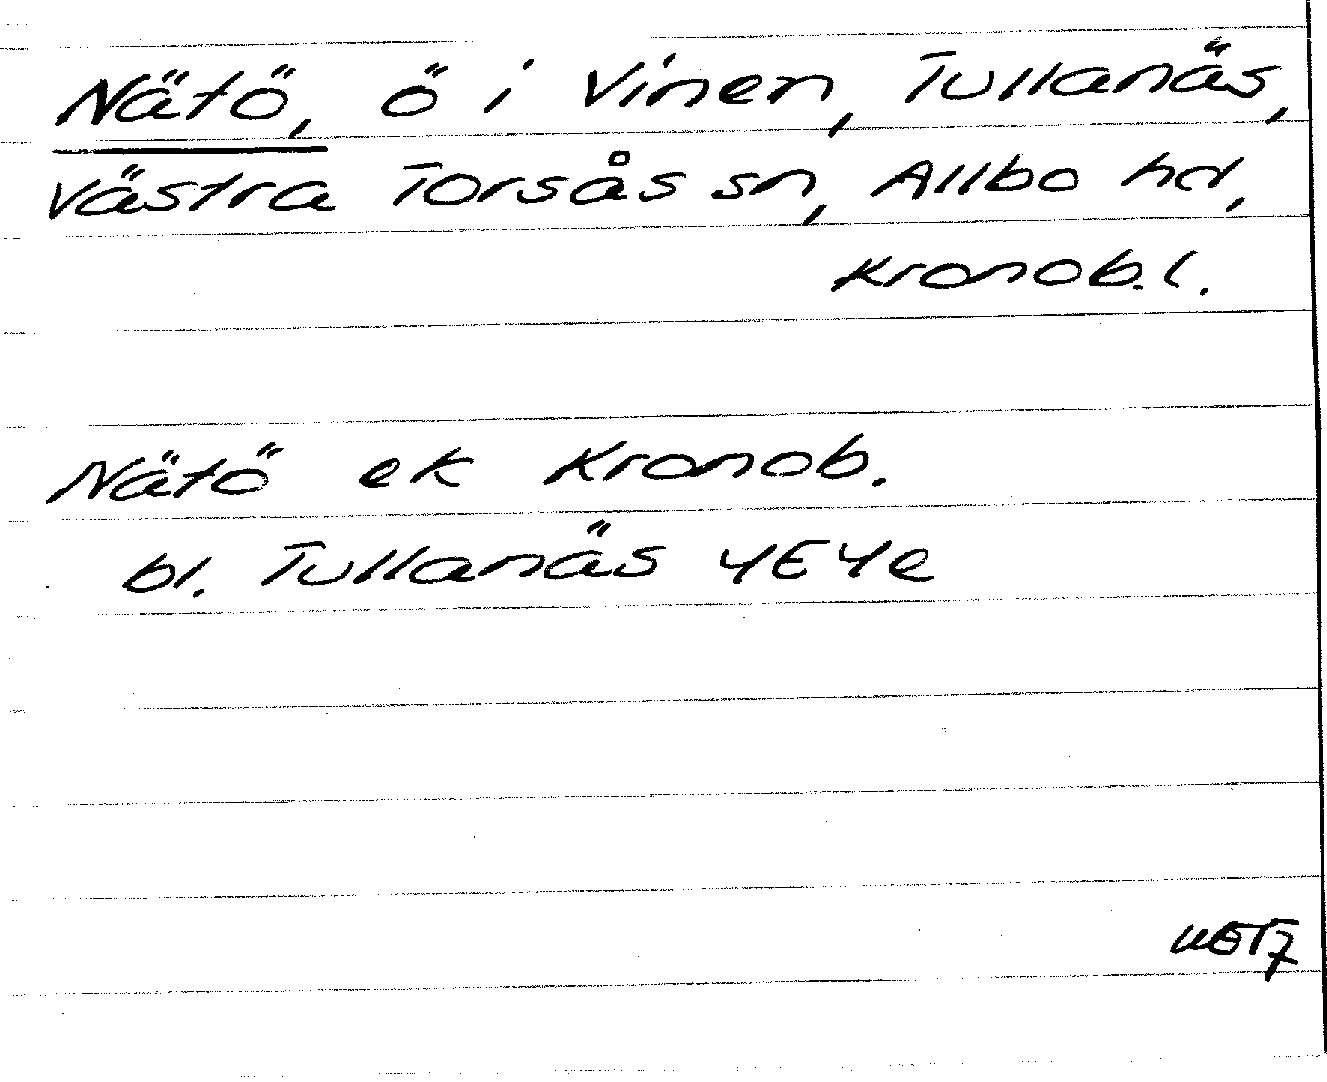 Nätö, ö i Vinen, Tullanäs,
Västra Torsås sn, Allbo hd,
Kronob. l.
Nätö ek Kronob.
bl. Tullanäs 4E4e